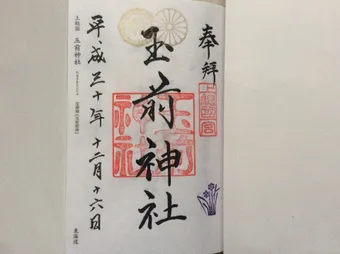 奉拝
上総一宮
玉前神社
玉前神社
平成三十年十二月十六日
上総国 玉前神社
東海道